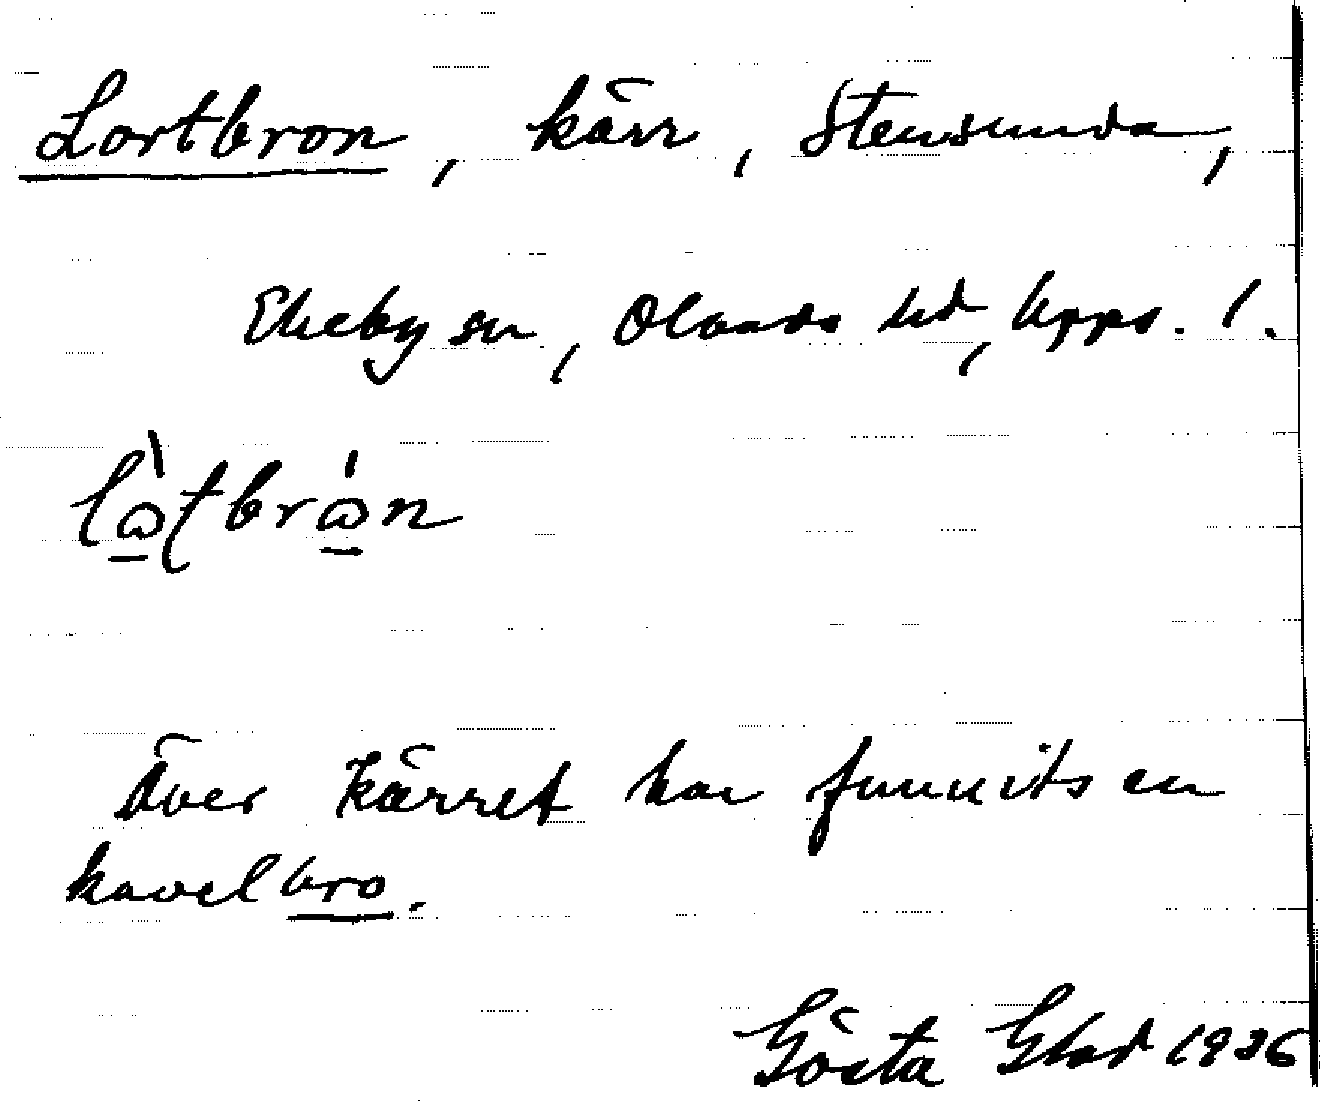 Lortbron, kärr, Stensunda,
Ekeby sn, Olands hd, Upps. l.
Över kärret har funnits en
kavelbro.
Gösta Glad 1936